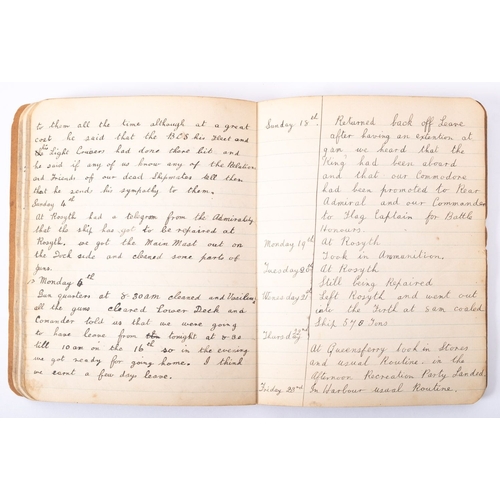 to them all the time although at a great
cost he said that the B.C.S his Fleet and
Light Cruisers had done there bit and
he said if any of us know any of the Relations
and Friends of our dead Shipmates tell them
that he send his sympathy to them.
Sunday 4th
At Rosyth had a telegram from the Admirality
that the ship has got to be repaired at
Rosyth. we got the Main Mast out on
the Dock side and cleaned some parts of
guns.
Monday 4th
Gun quarters at 8.30 am cleaned and
all the guns cleared Lower Deck and
Comander told us that we were going
to have leave from tonight at 8.30
till 10 am on the 16th so in the evening
we got ready for going home. I think
we earnt a few days leave.
Sunday 18th. Returned back off Leave
after having an extention at
9 am we heard that the
King had been aboard
and that our Commodore
had been promoted to Rear
Admiral and our Commander
to Flag Captain for Battle
Honours.
Monday 19th At Rosyth
Took in Ammunition.
Tuesday 20th At Rosyth
Still being Repaired
Wednesday 21st Left Rosyth and went out
into the Forth at 8am coaled
Ship 570 Tons
Thursday 22nd
At Queensferry took in Stores
and usual Routine. in the
afternoon Recreation Party Landed
Friday 23rd In Harbour usual Routine.